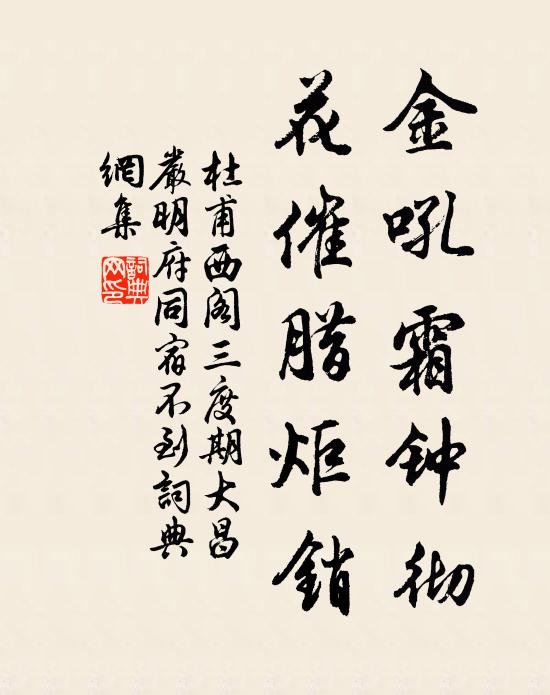 金吼霜钟彻
花催腊炬销
杜甫西阁三度期大昌
嚴明府同宿不到詞典
網集
詞典
网印